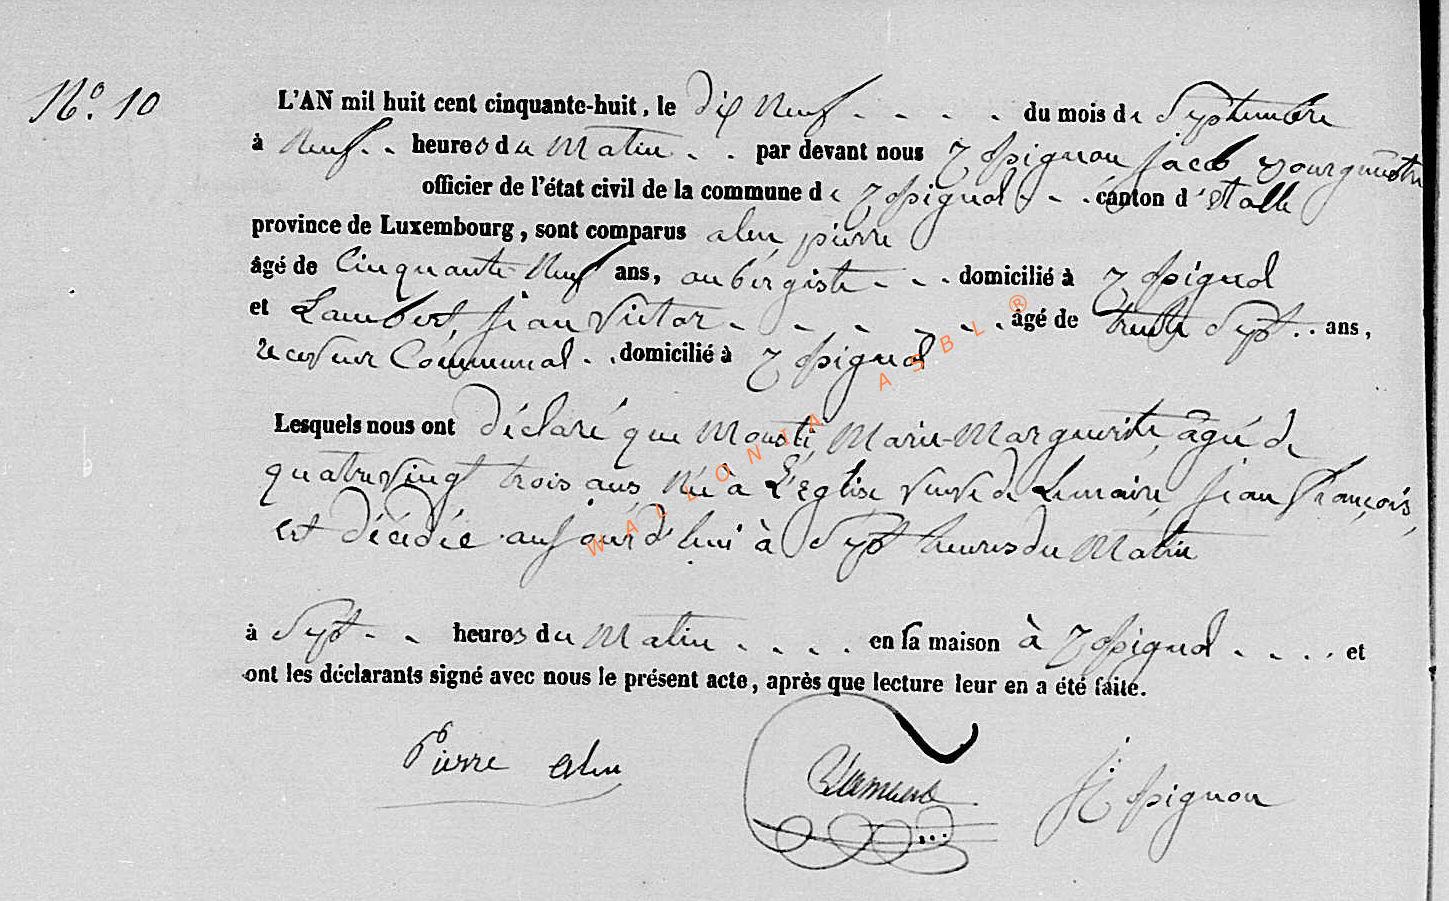 N° 10
L'AN mil huit cent cinquante-huit, le dix Neuf - - - - du mois de Septembre
à Neuf - - heures du Matin - - par devant nous Jacob Bourguemestre
officier de l'état civil de la commune de - - canton d'Etalle
province de Luxembourg, sont comparus pierre
âgé de Cinquante Neuf ans, aubergiste - - - domicilié à
et Lambert, Jean Victor - - - - - - âgé de trente Sept - - ans,
receveur Communal - - domicilié à
Lesquels nous ont déclaré que Marie-Marguerite, âgé de
quatrevingt trois ans, Né à L'Eglise veuve de Lemaire, Jean François,
est décédée aujourd'hui à Sept heures du Matin
à Sept - - heures du Matin - - - - en sa maison à - - - - et
ont les déclarants signé avec nous le présent acte, après que lecture leur en a été faite.
Pierre Lambert
WALLONIA ASBL ®